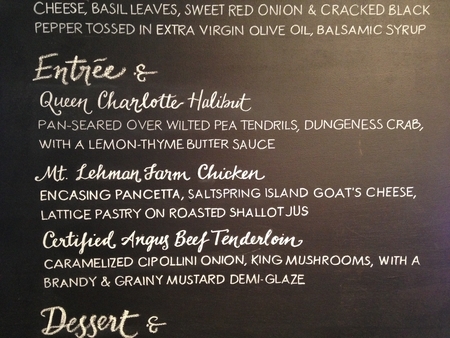 CHEESE, BASIL LEAVES, SWEET RED ONION & CRACKED BLACK
PEPPER TOSSED IN EXTRA VIRGIN OLIVE OIL, BALSAMIC SYRUP
Entrée &
Queen Charlotte Halibut
PAN-SEARED OVER WILTED PEA TENDRILS, DUNGENESS CRAB,
WITH A LEMON-THYME BUTTER SAUCE
Mt. Lehman Farm Chicken
ENCASING PANCETTA, SALTSPRING ISLAND GOAT'S CHEESE,
LATTICE PASTRY ON ROASTED SHALLOT JUS
Certified Angus Beef Tenderloin
CARAMELIZED CIPOLLINI ONION, KING MUSHROOMS, WITH A
BRANDY & GRAINY MUSTARD DEMI-GLAZE
Dessert &